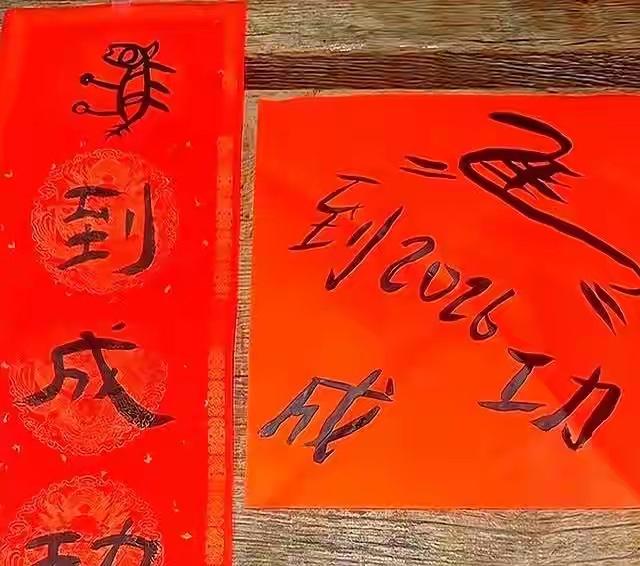 到
成
功
到
2026
成
功